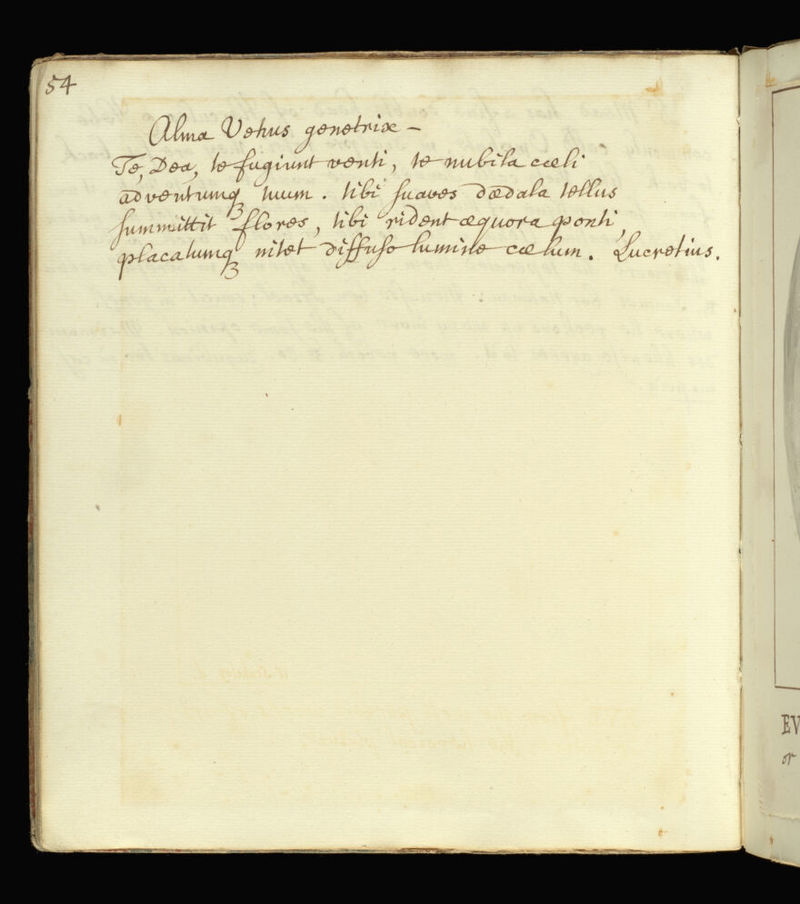 54
Alma Venus genetrix –
Te, Dea, te fugiunt venti, te nubila cæli
adventumqꝫ tuum . tibi suaves dædala tellus
summittit flores, tibi rident æquora ponti,
placatumqꝫ nitet diffuso lumine cælum. Lucretius.
EV
or